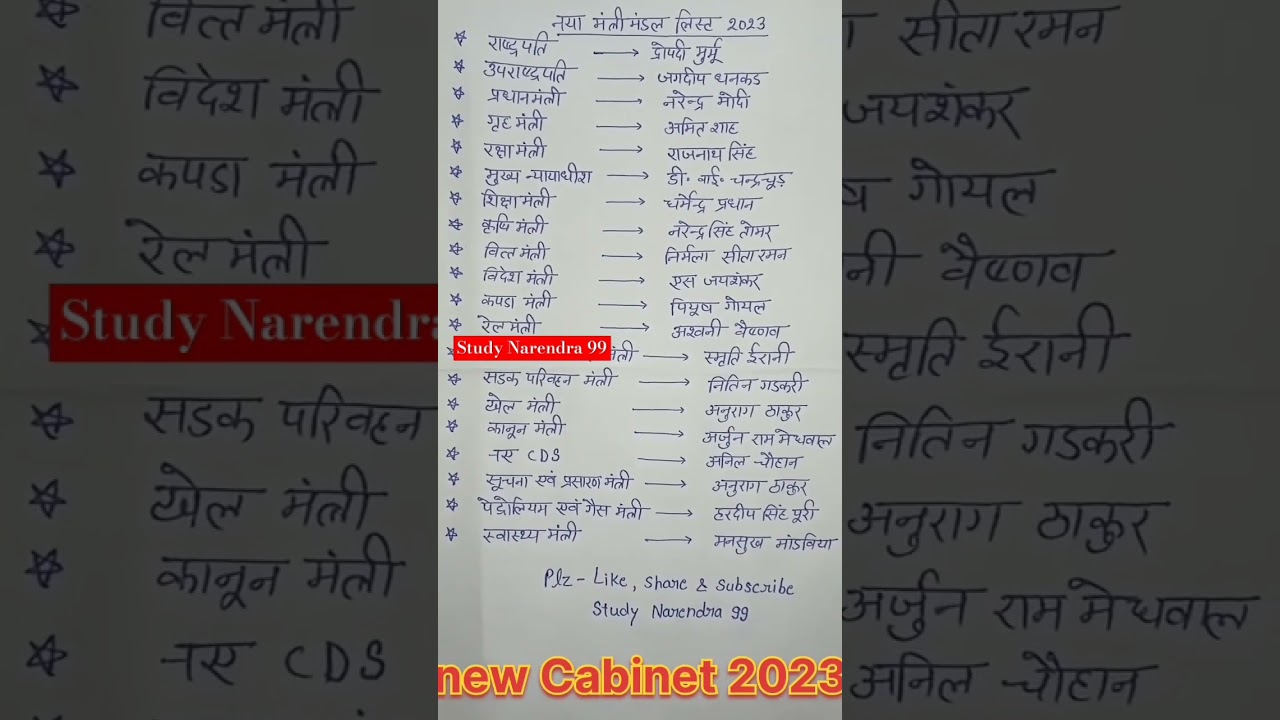 नया मंत्री मंडल लिस्ट 2023
राष्ट्रपति → द्रोपदी मुर्मू
उपराष्ट्रपति → जगदीप धनकड
प्रधानमंत्री → नरेन्द्र मोदी
गृह मंत्री → अमित शाह
रक्षा मंत्री → राजनाथ सिंह
मुख्य न्यायाधीश → डी॰ वाई॰ चन्द्रचूड़
शिक्षा मंत्री → धर्मेन्द्र प्रधान
कृषि मंत्री → नरेन्द्र सिंह तोमर
वित्त मंत्री → निर्मला सीतारमन
विदेश मंत्री → एस जयशंकर
कपडा मंत्री → पियूष गोयल
रेल मंत्री → अश्वनी वैष्णव
Study Narendra 99
मंत्री → स्मृति ईरानी
सडक परिवहन मंत्री → नितिन गडकरी
खेल मंत्री → अनुराग ठाकुर
कानून मंत्री → अर्जुन राम मेघवाल
नए CDS → अनिल चौहान
सूचना एवं प्रसारण मंत्री → अनुराग ठाकुर
पेट्रोलियम एवं गैस मंत्री → हरदीप सिंह पूरी
स्वास्थ्य मंत्री → मनसुख मांडविया
Plz - Like, Share & Subscribe
Study Narendra 99
new Cabinet 2023
वित्त मंत्री
विदेश मंत्री
कपडा मंत्री
रेल मंत्री
Study Narendra
सडक परिवहन
खेल मंत्री
कानून मंत्री
नए CDS
सीतारमन
जयशंकर
गोयल
वैष्णव
स्मृति ईरानी
नितिन गडकरी
अनुराग ठाकुर
अर्जुन राम मेघवाल
अनिल चौहान